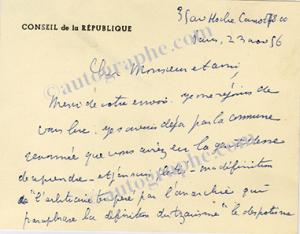 CONSEIL de la RÉPUBLIQUE
35 av Hoche Carnot 78 00
Paris, 23 nov 56
Cher Monsieur et ami,
Merci de votre envoi. Je me réjouis de
vous lire. Je savais déjà par la commune
renommée que vous aviez eu la gentillesse
de reprendre - et j'en suis flatté - ma définition
de "l'arbitraire tempéré par l'anarchie" qui
paraphrase la définition du tzarisme "le despotisme
©autographe.com
www.autographe.com